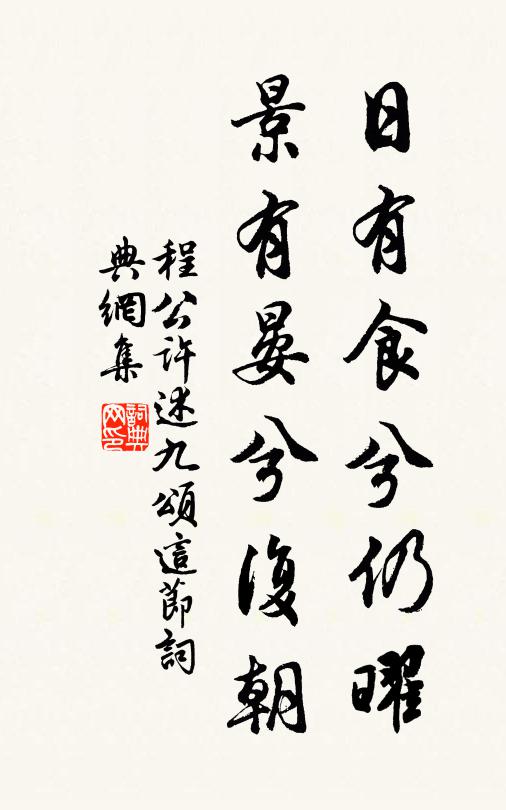 日有食兮仍曜
景有晏兮復朝
程公許述九頌這節詞
典網集
詞典
网印